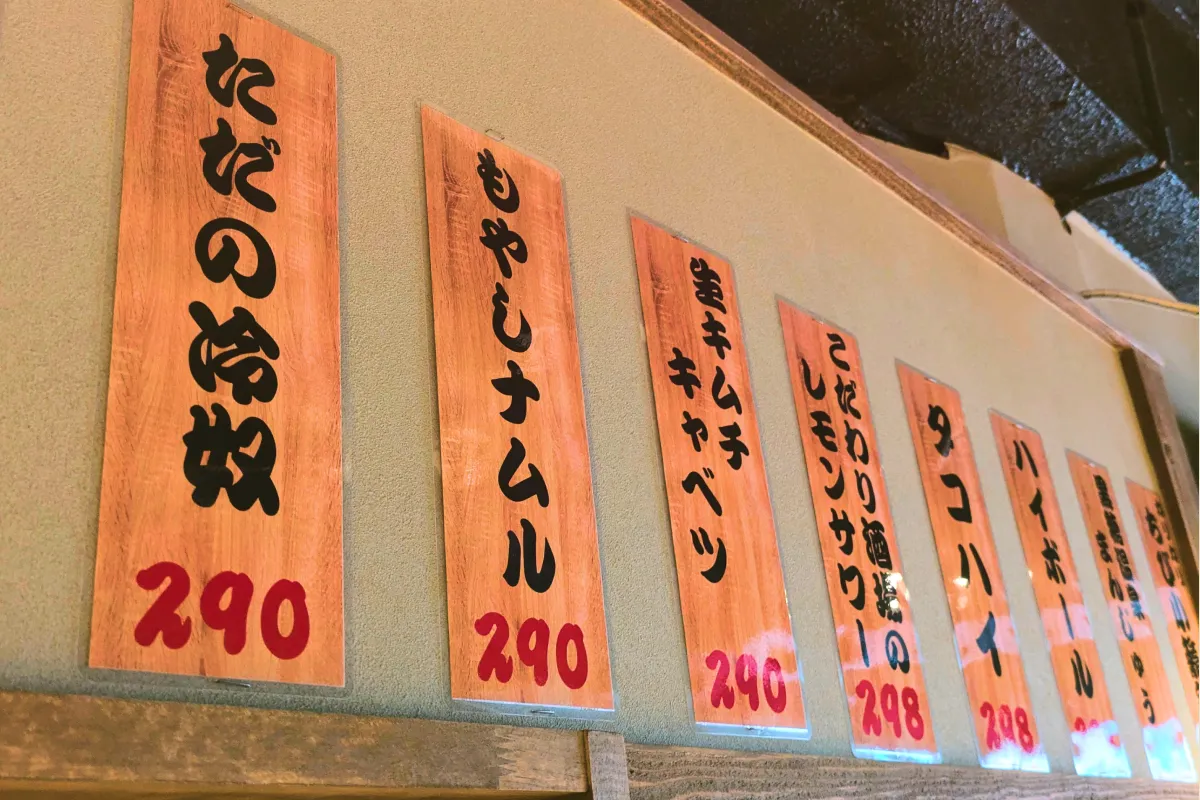 ただの冷奴
290
もやしナムル
290
生キムチ
キャベツ
290
こだわり酒場の
レモンサワー
298
タコハイ
298
ハイボール